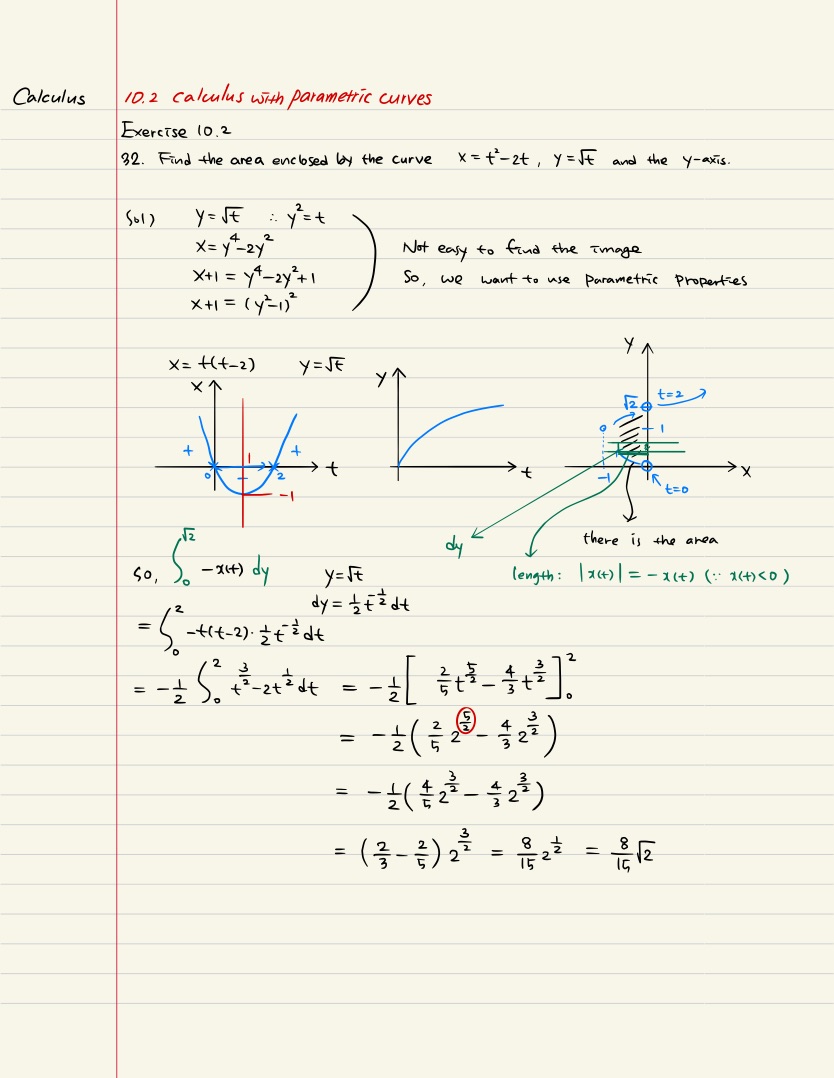 Calculus
10.2 calculus with parametric curves
Exercise 10.2
32. Find the area enclosed by the curve x = t²-2t , y = √t and the y-axis.
Sol) y = √t ∴ y² = t
x = y⁴-2y²
x+1 = y⁴-2y²+1
x+1 = (y²-1)²
Not easy to find the image
So, we want to use parametric properties
x = t(t-2) y = √t
x t + + - 0 1 2 -1
y t
y x √2 t=2 1 -1 t=0
there is the area
dy
length: |x(t)| = -x(t) (∵ x(t)<0)
So, ∫₀^√2 -x(t) dy y = √t
dy = 1/2 t^(-1/2) dt
= ∫₀² -t(t-2)· 1/2 t^(-1/2) dt
= -1/2 ∫₀² t^(3/2) - 2t^(1/2) dt = -1/2 [ 2/5 t^(5/2) - 4/3 t^(3/2) ]₀²
= -1/2 ( 2/5 2^(5/2) - 4/3 2^(3/2) )
= -1/2 ( 4/5 2^(3/2) - 4/3 2^(3/2) )
= ( 2/3 - 2/5 ) 2^(3/2) = 8/15 2^(1/2) = 8/15 √2